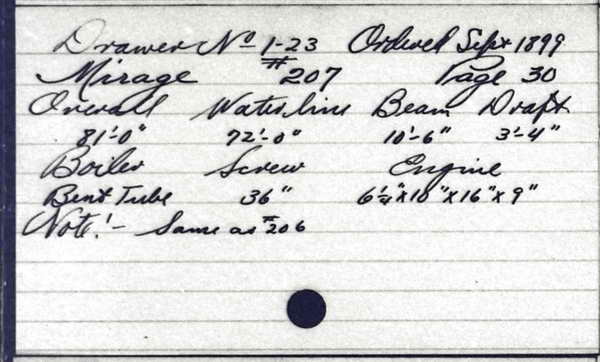 Drawer No 1-23 Ordered Sept 1899
Mirage #207 Page 30
Overall Waterline Beam Draft
81'-0" 72'-0" 10'-6" 3'-4"
Boiler Screw Engine
Bent Tube 36" 6 1/4" x 10" x 16" x 9"
Note:- Same as #206